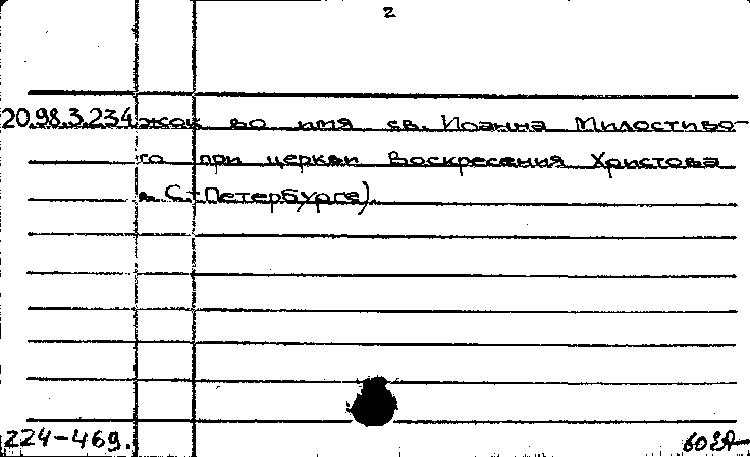 2
20.98.3.234 жок во имя св. Иоанна Милостиво-
го при церкви Воскресения Христова
в С.-Петербурге).
224-469.